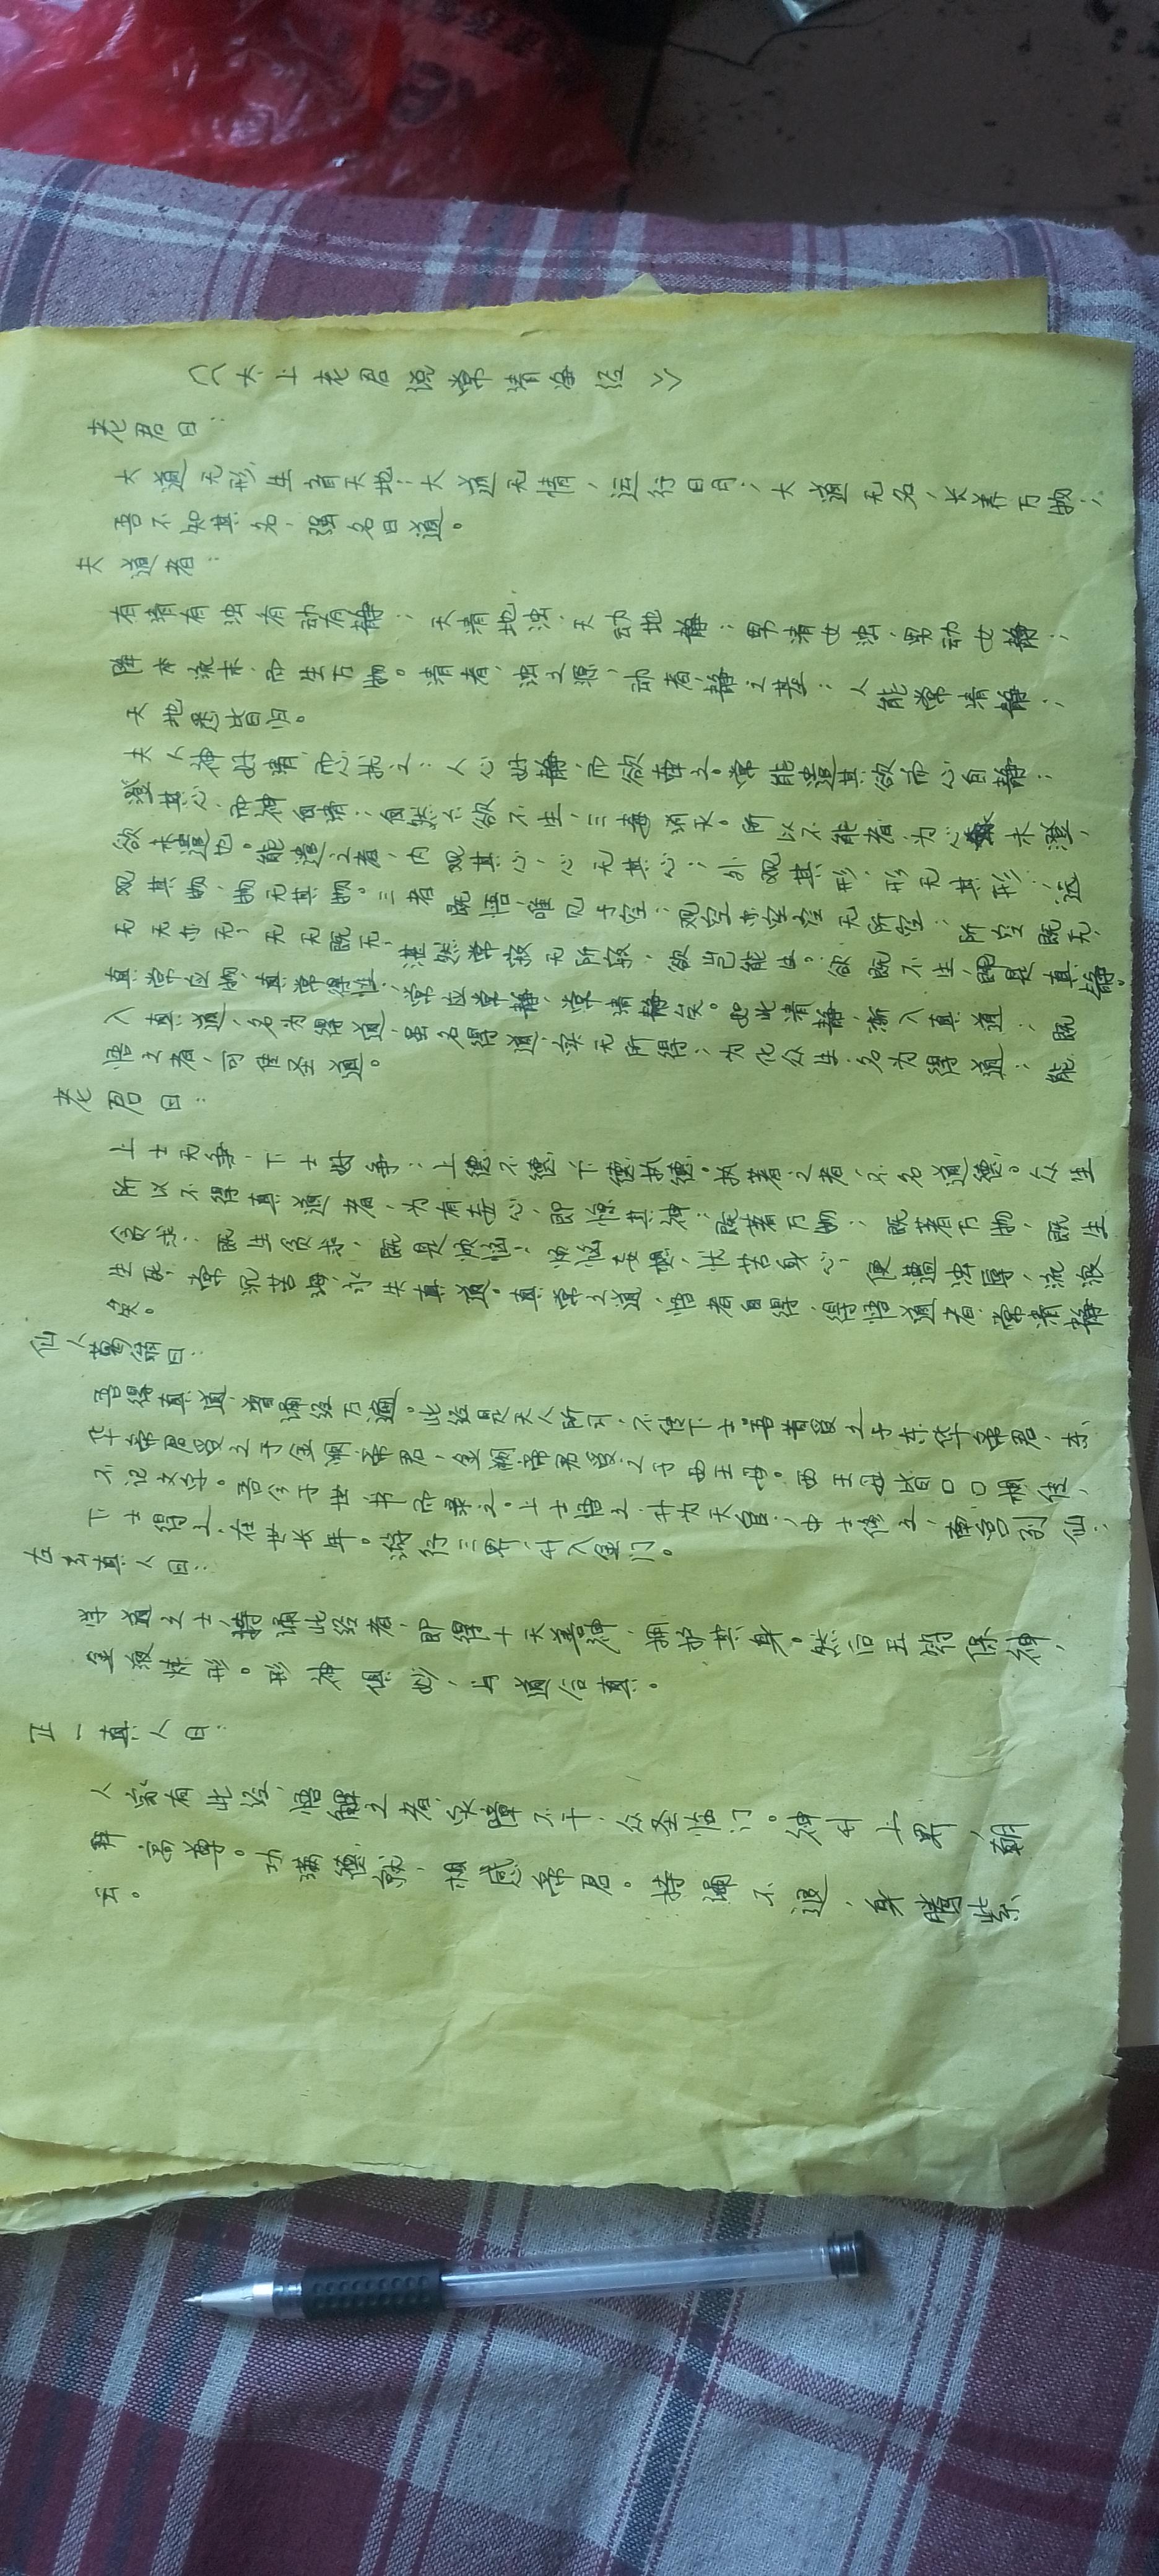 《太上老君说常清净经》
老君曰：
大道无形，生育天地；大道无情，运行日月；大道无名，长养万物；
吾不知其名，强名曰道。
夫道者：
有清有浊，有动有静；天清地浊，天动地静；男清女浊，男动女静；
降本流末，而生万物。清者，浊之源，动者，静之基；人能常清静，
天地悉皆归。
夫人神好清，而心扰之；人心好静，而欲牵之。常能遣其欲而心自静；
澄其心，而神自清；自然六欲不生，三毒消灭。所以不能者，为心未澄，
欲未遣也。能遣之者，内观其心，心无其心；外观其形，形无其形；远
观其物，物无其物。三者既悟，唯见于空；观空亦空，空无所空；所空既无，
无无亦无；无无既无，湛然常寂；寂无所寂，欲岂能生。欲既不生，即是真静。
真常应物，真常得性；常应常静，常清静矣。如此清静，渐入真道；既
入真道，名为得道，虽名得道，实无所得；为化众生，名为得道；能
悟之者，可传圣道。
老君曰：
上士无争，下士好争；上德不德，下德执德。执著之者，不名道德。众生
所以不得真道者，为有妄心，即惊其神；既著万物；既著万物，既生
贪求；既生贪求，既是烦恼；烦恼妄想，忧苦身心，便遭浊辱，流浪
生死，常沉苦海，永失真道。真常之道，悟者自得，得悟道者，常清静
矣。
仙人葛翁曰：
吾得真道，曾诵经万遍。此经是天人所习，不传下士。吾昔受之于东华帝君，东
华帝君受之于金阙帝君，金阙帝君受之于西王母。西王母皆口口相传，
不记文字。吾今于世，书而录之。上士悟之，升为天官；中士修之，南宫列仙；
下士得之，在世长年。游行三界，升入金门。
左玄真人曰：
学道之士，持诵此经者，即得十天善神，拥护其身。然后玉符保神，
金液炼形。形神俱妙，与道合真。
正一真人曰：
人家有此经，悟解之者，灾障不干，众圣临门。神升上界，朝
拜高尊。功满德就，相感帝君。持诵不退，身腾紫
云。